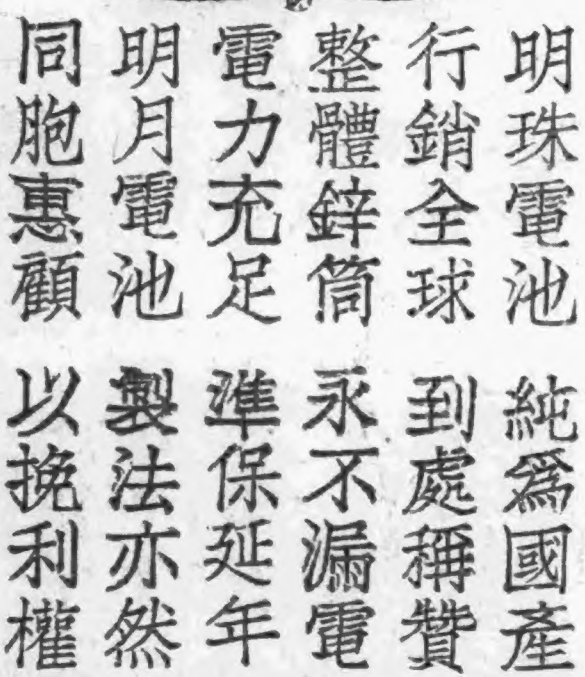 明珠電池
純爲國產
行銷全球
到處稱贊
整體鋅筒
永不漏電
電力充足
準保延年
明月電池
製法亦然
同胞惠顧
以挽利權